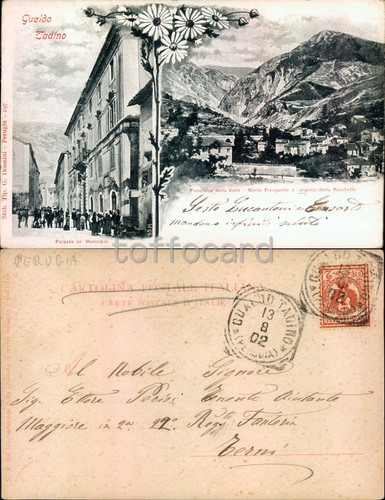 Gualdo
Tadino
Stab. Tip. G. Donnini - Perugia - 107
Palazzo del Municipio
Panorama della Valle - Monte Penna e sorgente della Rocchetta
Sesto Lucantoni e Consorte
mandano infiniti saluti
toffocard
PERUGIA
CARTOLINA POSTALE ITALIANA
CARTE POSTALE D'ITALIE
GUALDO TADINO
13
8
02
(PERUGIA)
Al Nobile Signore
Sig. Ettore Parisi Tenente Aiutante
Maggiore in 2a 12° Regt° Fanteria
Terni